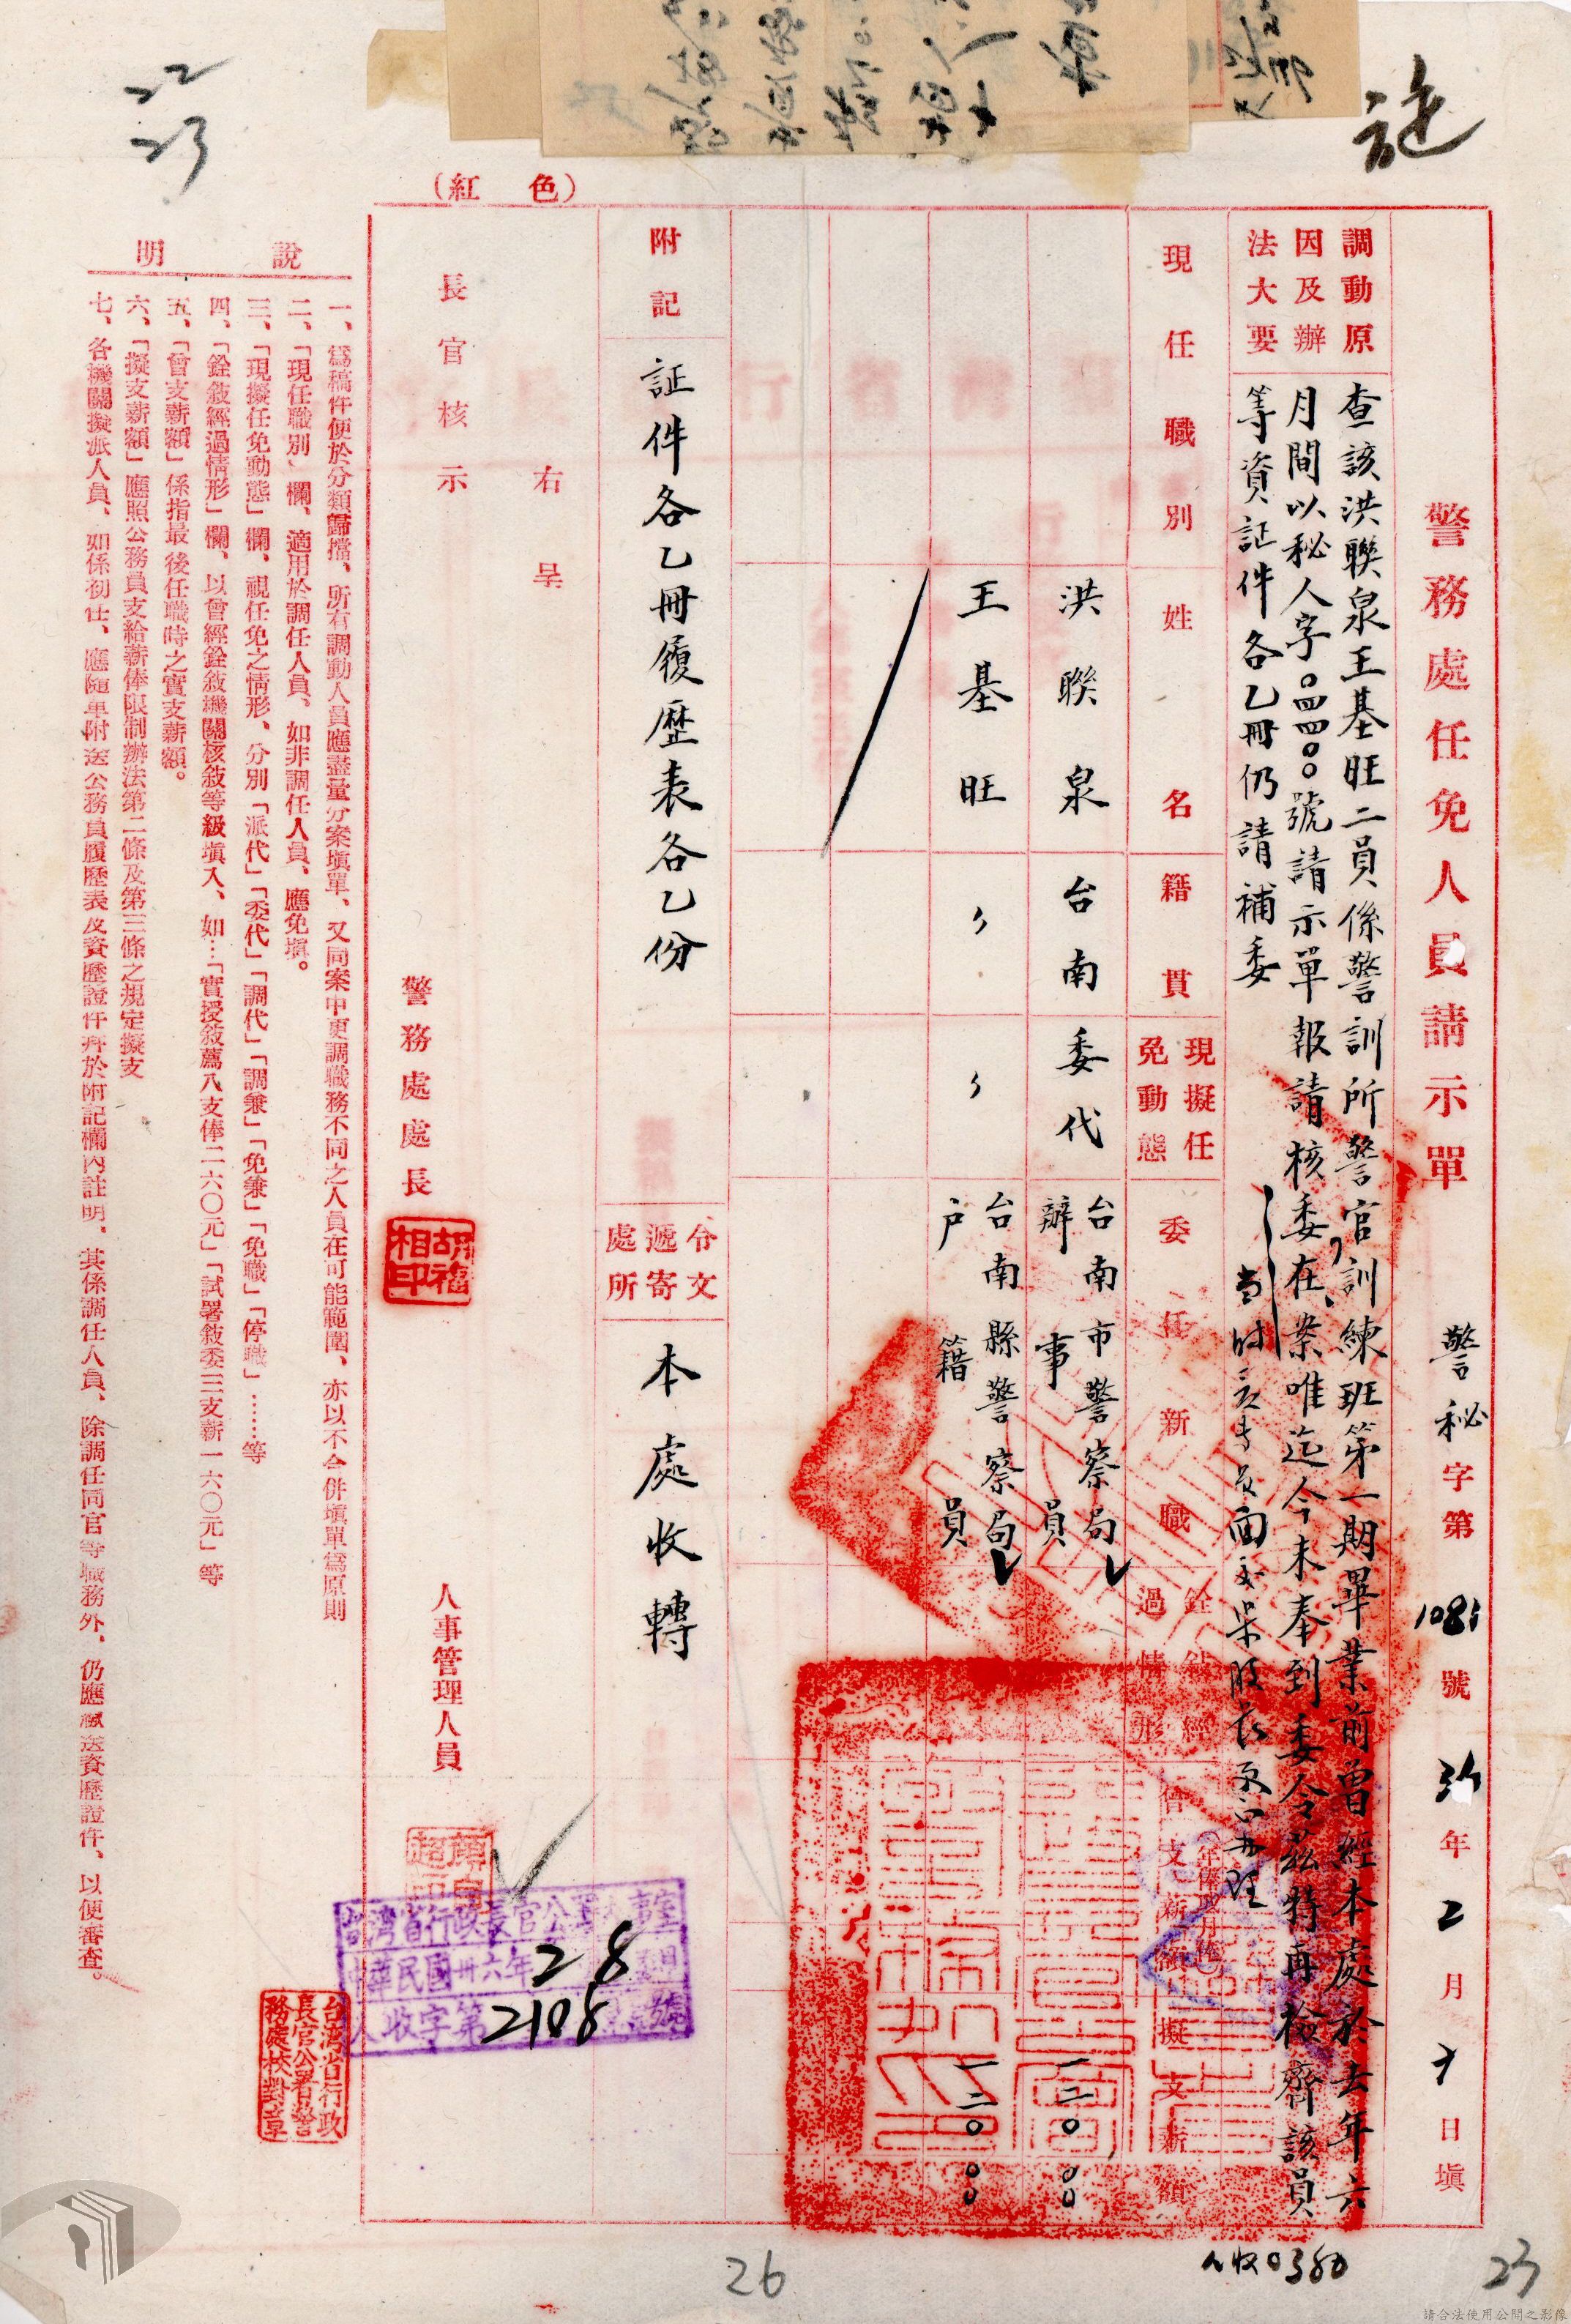 誌
22
23
(紅色)
警務處任免人員請示單
警秘字第108 號 36年2月 日填
調動原因及辦法大要
查該洪聯泉王基旺二員係警訓所警官訓練班第一期畢業前曾經本處於去年六
月間以秘人字。四四〇〇號請示單報請核委在案唯迄今未奉到委令茲特再檢齊該員
等資証件各乙冊仍請補委
現任職別
姓名
籍貫
現擬任免動態
委任新職
銓敍經過情形
曾支薪額
(年俸或月俸)
擬支薪額
洪聯泉 台南 委代 台南市警察局辦事員 一二〇〇〇
王基旺 〃 〃 台南縣警察局戶籍員 一二〇〇〇
附記
証件各乙冊履歷表各乙份
令文遞寄處所
本處收轉
右呈
長官核示
警務處處長
胡福相印
人事管理人員
台灣省行政長官公署人事室
中華民國卅六年 2 8
人收字第2108號
台灣省行政長官公署警務處校對章
說明
一、爲稿件便於分類歸擋、所有調動人員應盡量分案塡單、又同案中更調職務不同之人員在可能範圍、亦以不合併塡單爲原則
二、「現任職別」欄、適用於調任人員、如非調任人員、應免塡。
三、「現擬任免動態」欄、視任免之情形、分別「派代」「委代」「調代」「調兼」「免兼」「免職」「停職」……等
四、「銓敍經過情形」欄、以曾經銓敍機關核敍等級塡入、如…「實授敍薦八支俸二六〇元」「試署敍委三支薪一六〇元」等
五、「曾支薪額」係指最後任職時之實支薪額。
六、「擬支薪額」應照公務員支給薪俸限制辦法第二條及第三條之規定擬支
七、各機關擬派人員、如係初任、應隨單附送公務員履歷表及資歷證件并於附記欄內註明、其係調任人員、除調任同官等職務外、仍應檢送資歷證件、以便審查。
人收0380
26
23
請合法使用公開之影像